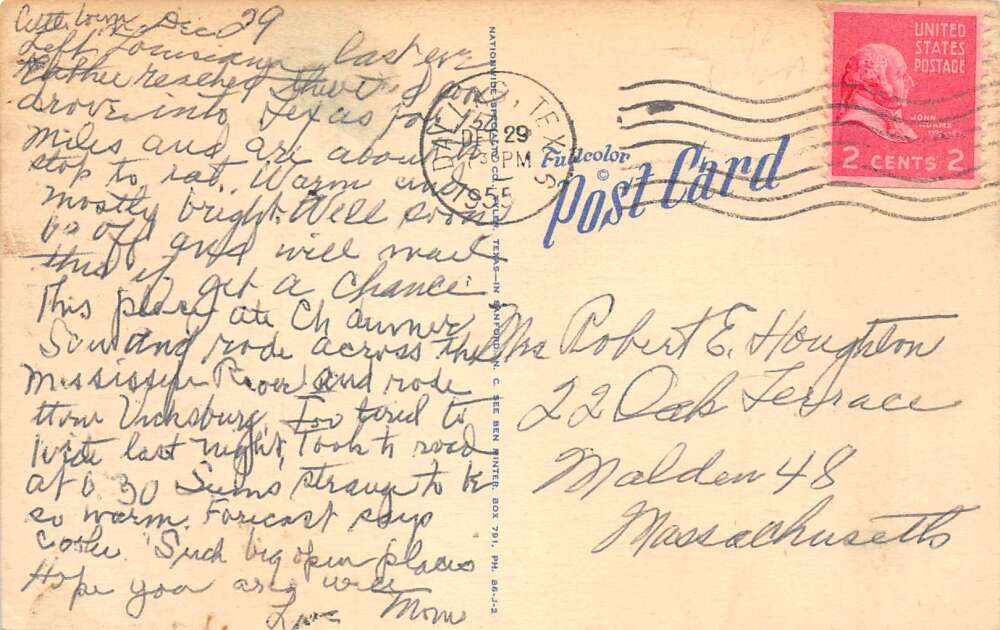 Little town Dec 29
Left Louisiana last eve
Rather reached that &
drove into Texas for
miles and are about to
stop to eat. Warm and
mostly bright. Well soon
be off guess will mail
this if get a chance.
This place ate Ch dinner
Sunday rode across the
Mississippi River and rode
thru Vicksburg. Too tired to
write last night, Took to road
at 6.30 Seems strange to be
so warm. Forecast says
cooler. Such big open places
Hope you are well
Love Mom
NATIONWIDE SPECIALTY CO., TYLER, TEXAS—IN SANFORD, N. C. SEE BEN MINTER, BOX 791, PH. 86-J-2
TEXAS
DEC 29
30 PM
1955
Fullcolor
©
Post Card
UNITED
STATES
POSTAGE
JOHN
ADAMS
2 CENTS 2
Mrs Robert E. Houghton
22 Oak Terrace
Malden 48
Massachusetts